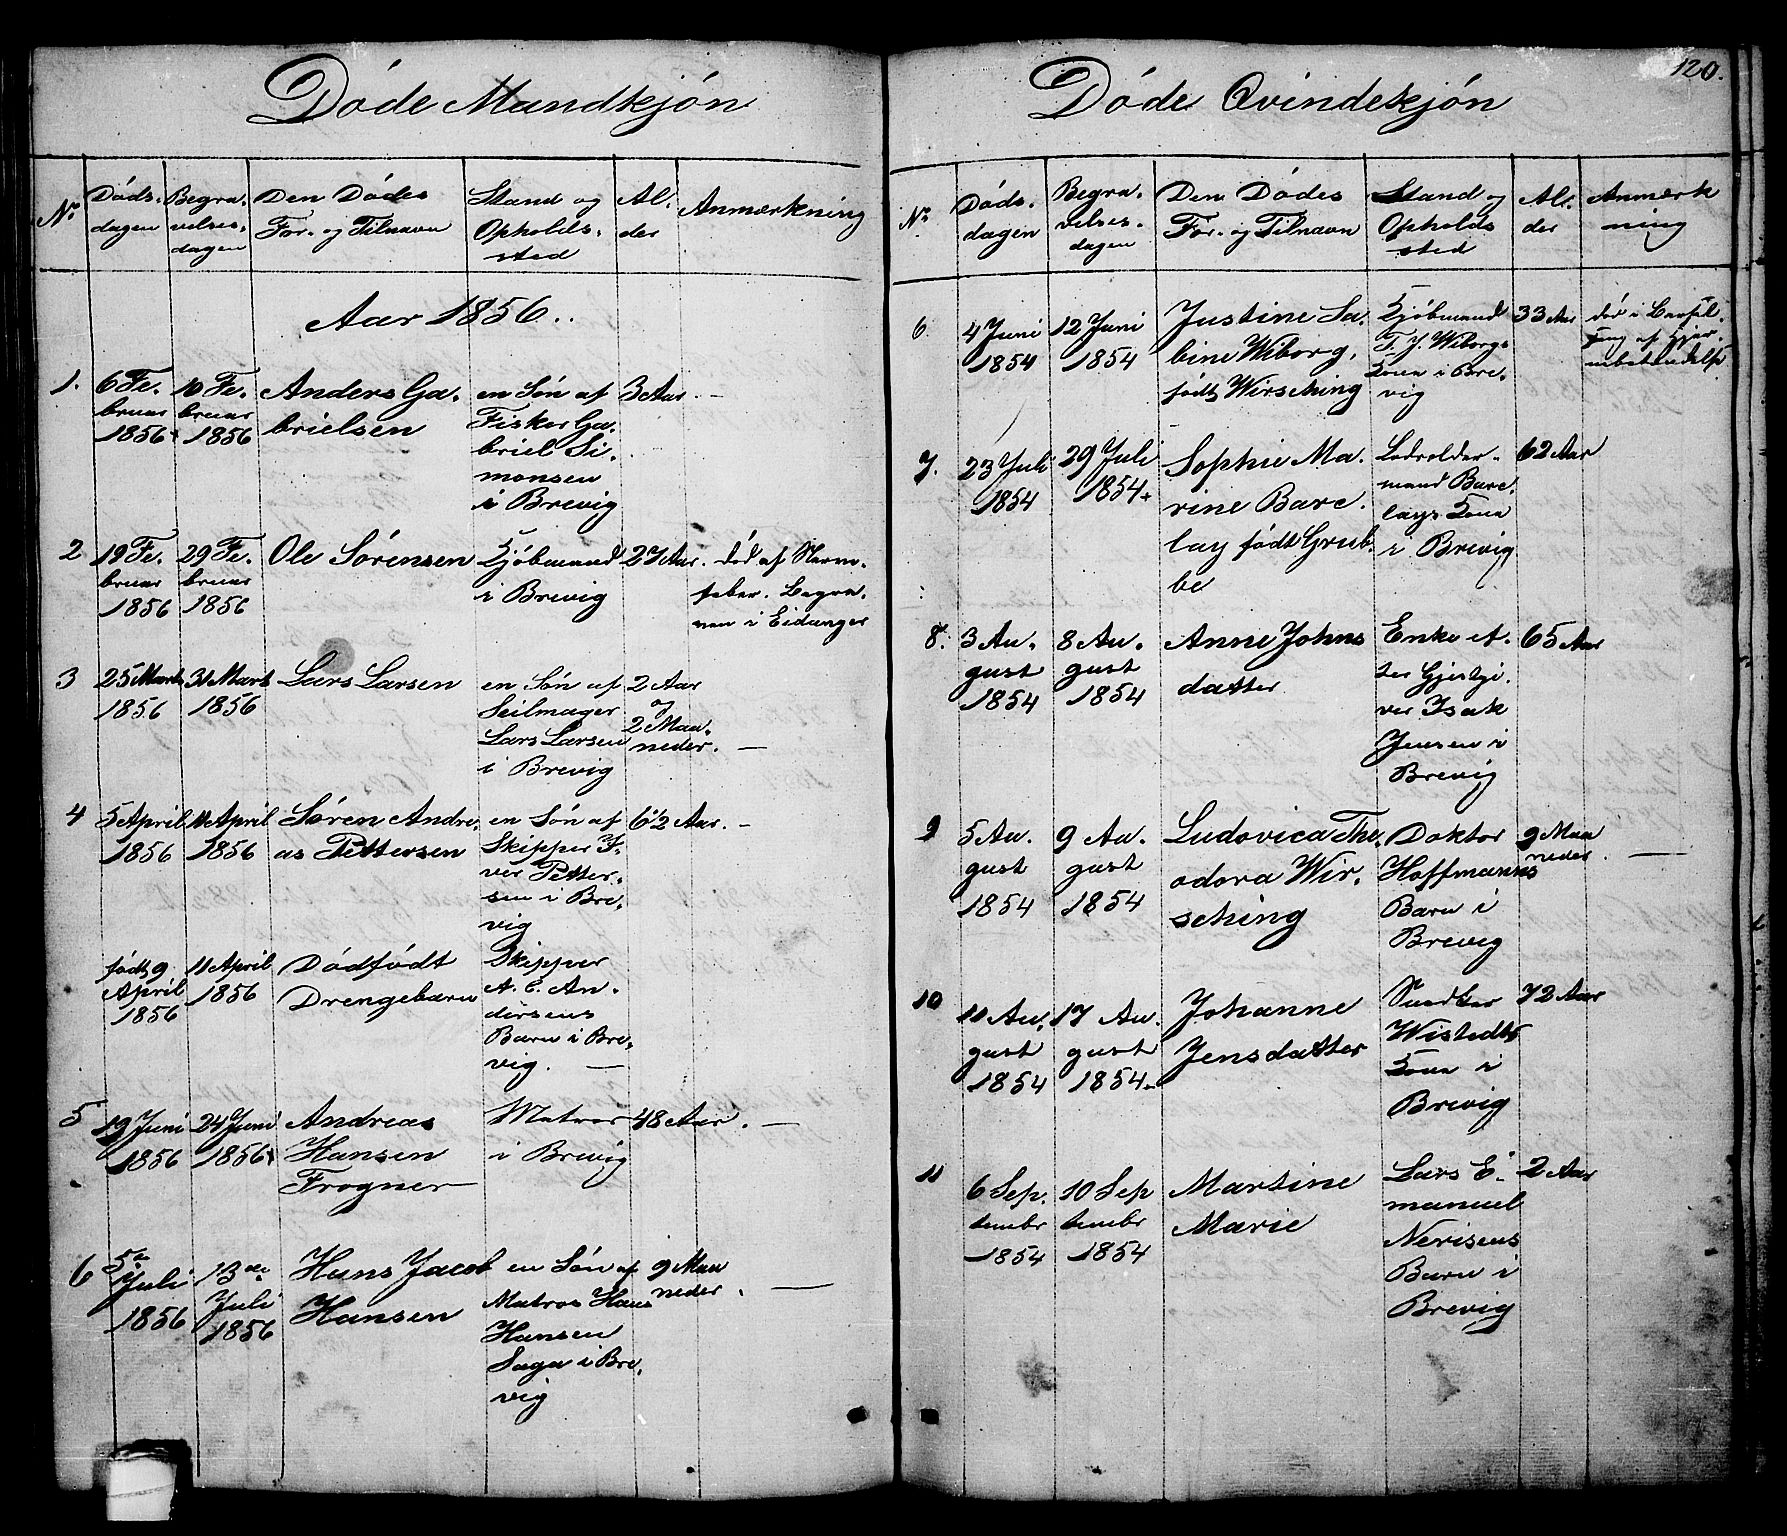 Døde Mandkjøn
No
Døds-
dagen
Begra-
velses-
dagen
Den Dødes
For- og Tilnavn
Stand og
Opholds-
sted
Al-
der
Anmærkning
Aar 1856..
1.
6 Fe-
bruar
1856
10 Fe-
bruar
1856
Anders Ga-
brielsen
en Søn af
Fisker Ga-
briel Si-
monsen
i Brevig
3 Aar. —
2
19 Fe-
bruar
1856
29 Fe-
bruar
1856
Ole Sørensen
Kjøbmand
i Brevig
27 Aar.
død af Nerve-
feber. Begra-
ven i Eidanger
3
25 Marts
1856
31 Marts
1856
Lars Larsen
en Søn af
Seilmager
Lars Larsen
i Brevig
2 Aar
og
2 Maa-
neder. —
4
5 April
1856
11 April
1856
Søren Andre-
as Pettersen
en Søn af
Skipper I-
ver Petter-
sen i Bre-
vig
6½ Aar. —
født 9
April
1856
11 April
1856
Dødfødt
Drengebarn
Skipper
A. C. An-
dersens
Barn i Bre-
vig. —
5
19 Juni
1856
24 Juni
1856
Andreas
Hansen
Frogner
Matros
i Brevig
48 Aar. —
6
5te
Juli
1856
13de
Juli
1856
Hans Jacob
Hansen
en Søn af
Matros Hans
Hansen
Saga i Bre-
vig
9 Maa
neder. —
120.
Døde Qvindekjøn
No
Døds-
dagen
Begra-
velses-
dagen
Den Dødes
For- og Tilnavn
Stand og
Opholds
sted
Al-
der
Anmærk
ning
6
4 Juni
1854
12 Juni
1854
Justine Sa-
bine Wiborg,
født Wirsching
Kjøbmand
T. J. Wiborgs
Kone i Bre-
vig
33 Aar
død i Barsel-
seng af
7.
23 Juli
1854
29 Juli
1854
Sophie Ma-
rine Barc-
lay født Grub-
be
Lodsolder-
mand Barc-
lays Kone
i Brevig
62 Aar
8.
3 Au-
gust
1854
8 Au-
gust
1854
Anne Johns
datter
Enke ef-
ter
Isak
Jensen i
Brevig
65 Aar
9
5 Au-
gust
1854
9 Au-
gust
1854
Ludovica The-
odora Wir-
sching
Doktor
Hoffmanns
Barn i
Brevig
9 Maa
neder. —
10
11 Au-
gust
1854
17 Au-
gust
1854
Johanne
Jensdatter
Snedker
Wistedts
Kone i
Brevig
72 Aar
11
6 Sep-
tembr
1854
10 Sep
tembr
1854
Martine
Marie
Lars E-
manuel
Nerisens
Barn i
Brevig
2 Aar